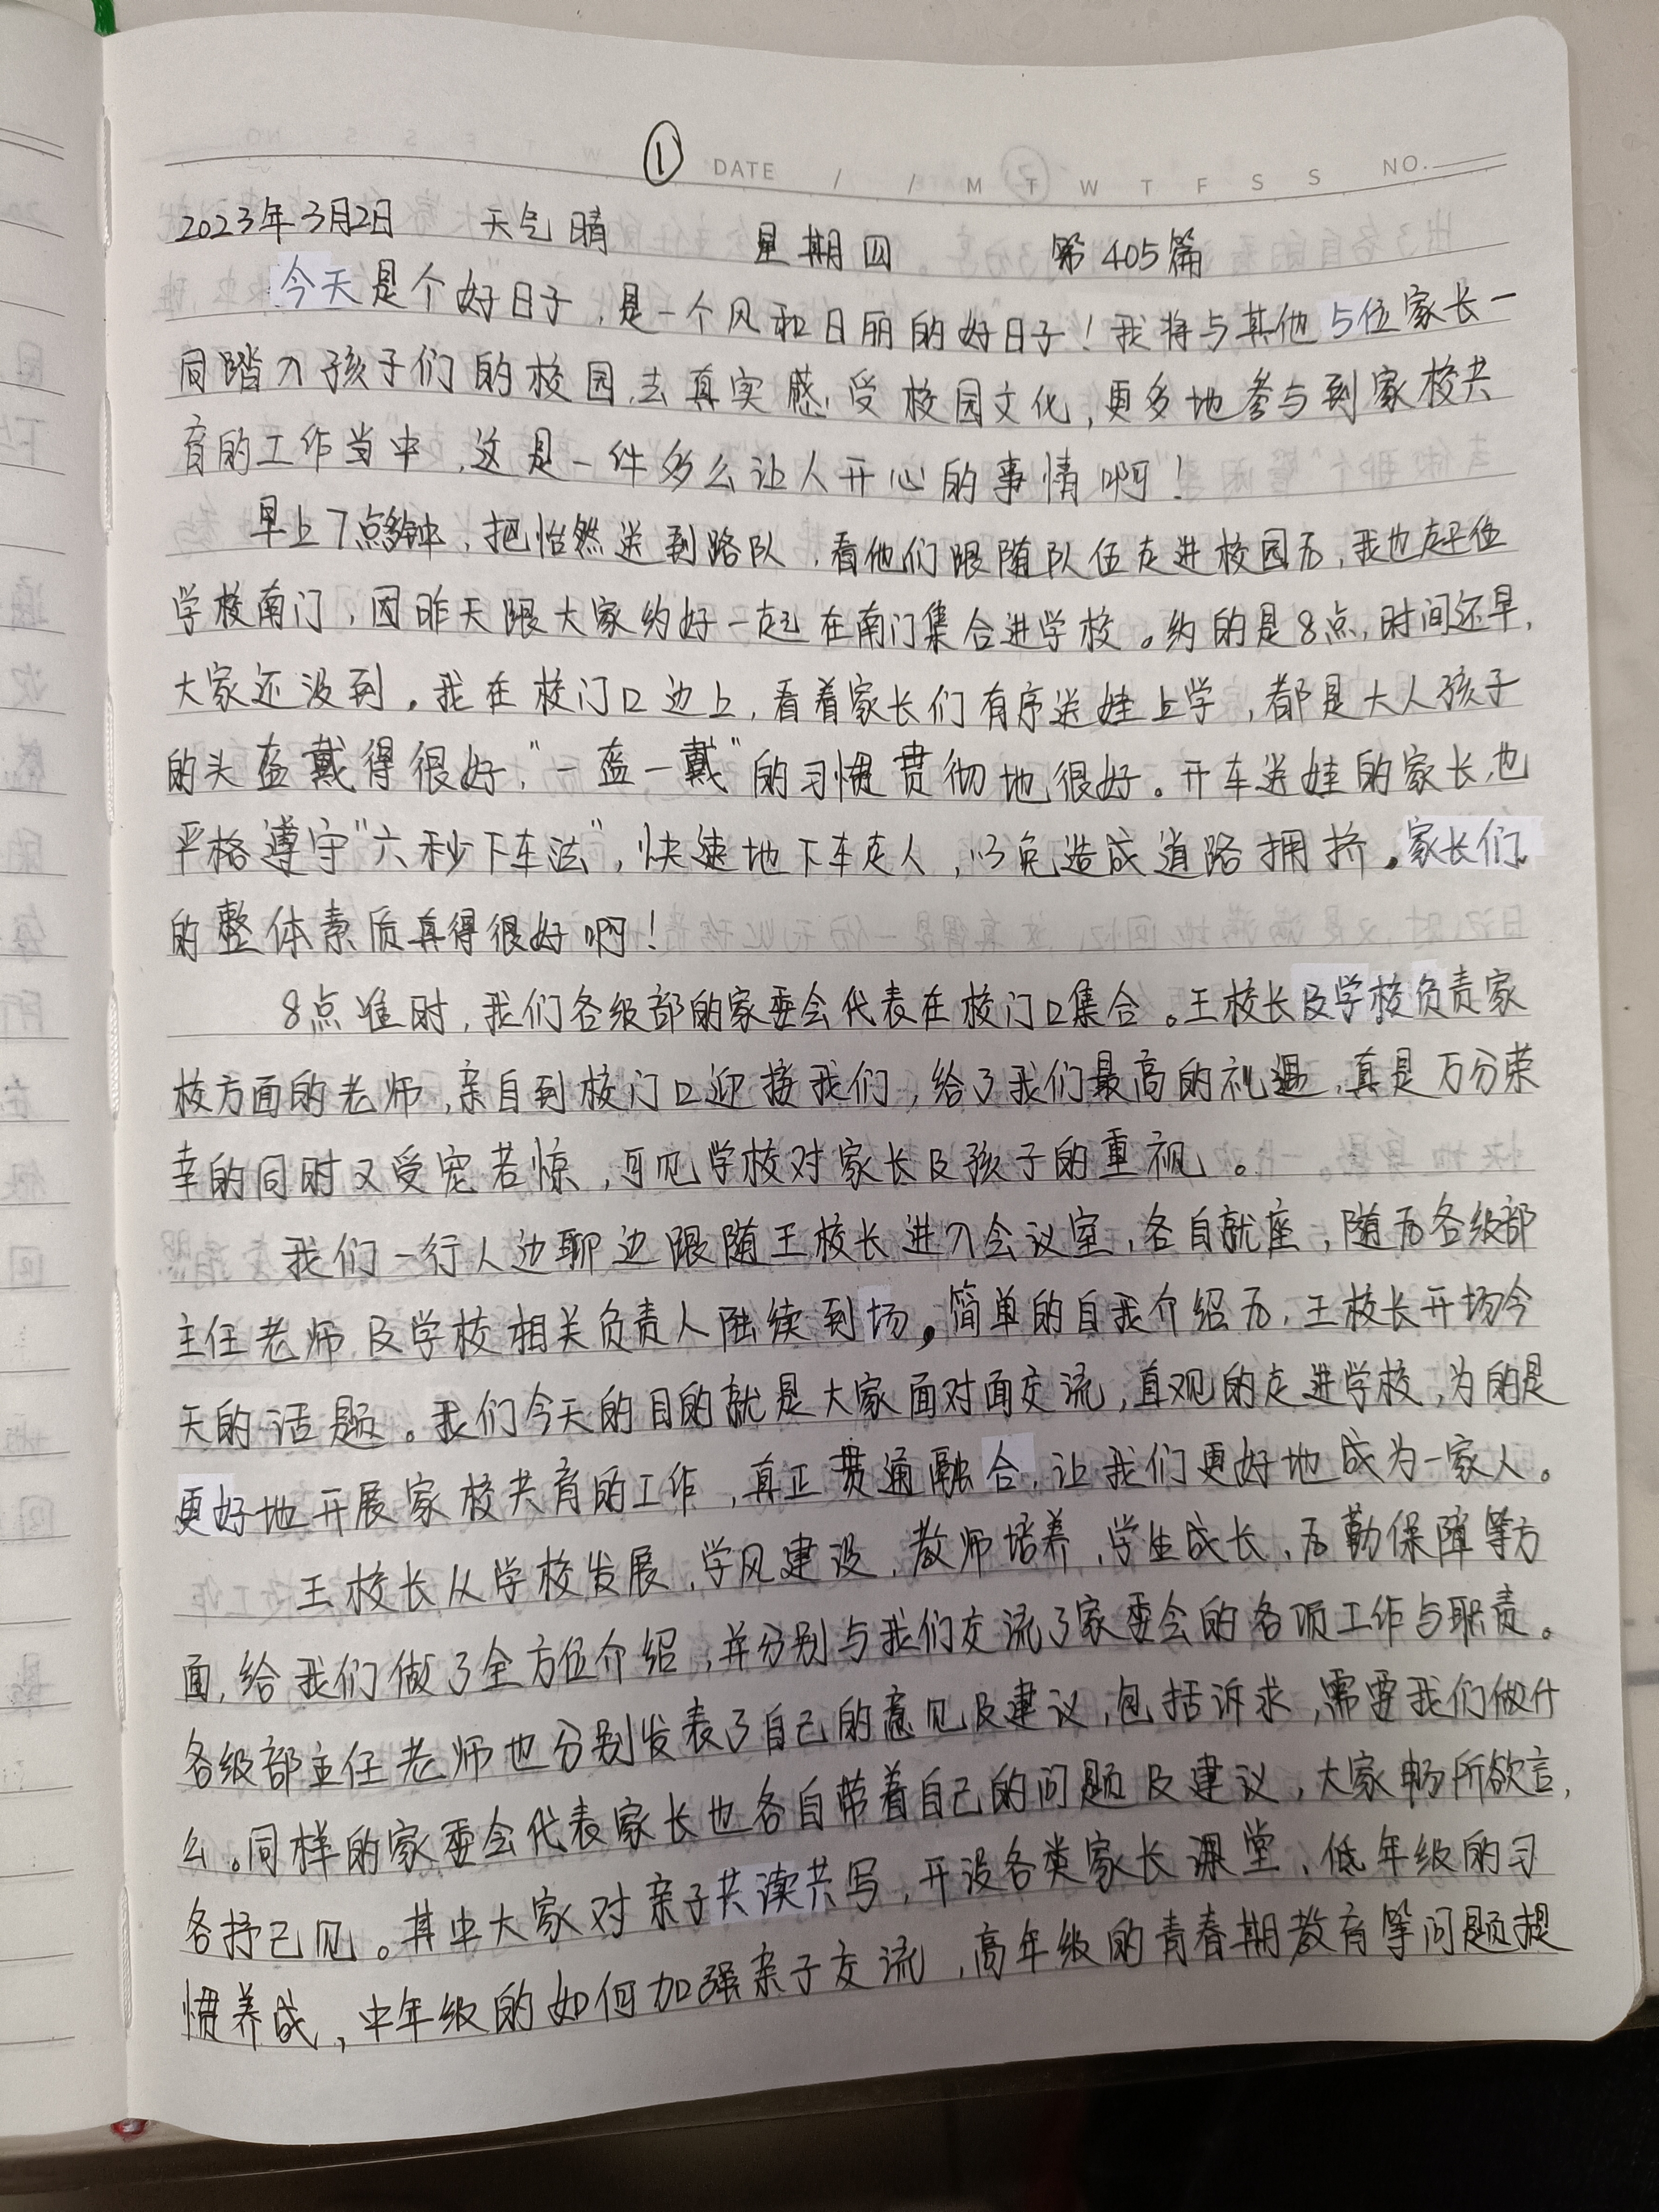 ①
DATE / / M T W T F S S NO.
2023年3月2日 天气晴 星期四 第405篇
今天是个好日子,是一个风和日丽的好日子!我将与其他5位家长一
同踏入孩子们的校园,去真实感受校园文化,更多地参与到家校共
育的工作当中,这是一件多么让人开心的事情啊!
早上7点多钟,把怡然送到路队,看他们跟随队伍走进校园后,我也赶往
学校南门,因昨天跟大家约好一起在南门集合进学校。约的是8点,时间还早,
大家还没到。我在校门口边上,看着家长们有序送娃上学,都是大人孩子
的头盔戴得很好,"一盔一戴"的习惯贯彻地很好。开车送娃的家长,也
严格遵守"六秒下车法",快速地下车走人,以免造成道路拥挤。家长们
的整体素质真得很好啊!
8点准时,我们各级部的家委会代表在校门口集合。王校长及学校负责家
校方面的老师,亲自到校门口迎接我们,给了我们最高的礼遇,真是万分荣
幸的同时又受宠若惊,可见学校对家长及孩子的重视。
我们一行人边聊边跟随王校长进入会议室,各自就座,随后各级部
主任老师及学校相关负责人陆续到场。简单的自我介绍后,王校长开场今
天的话题。我们今天的目的就是大家面对面交流,直观的走进学校,为的是
更好地开展家校共育的工作,真正贯通融合,让我们更好地成为一家人。
王校长从学校发展,学风建设,教师培养,学生成长,后勤保障等方
面,给我们做了全方位介绍,并分别与我们交流了家委会的各项工作与职责。
各级部主任老师也分别发表了自己的意见及建议,包括诉求,需要我们做什
么。同样的家委会代表家长也各自带着自己的问题及建议,大家畅所欲言,
各抒己见。其中大家对亲子共读共写,开设各类家长课堂,低年级的习
惯养成,中年级的如何加强亲子交流,高年级的青春期教育等问题提